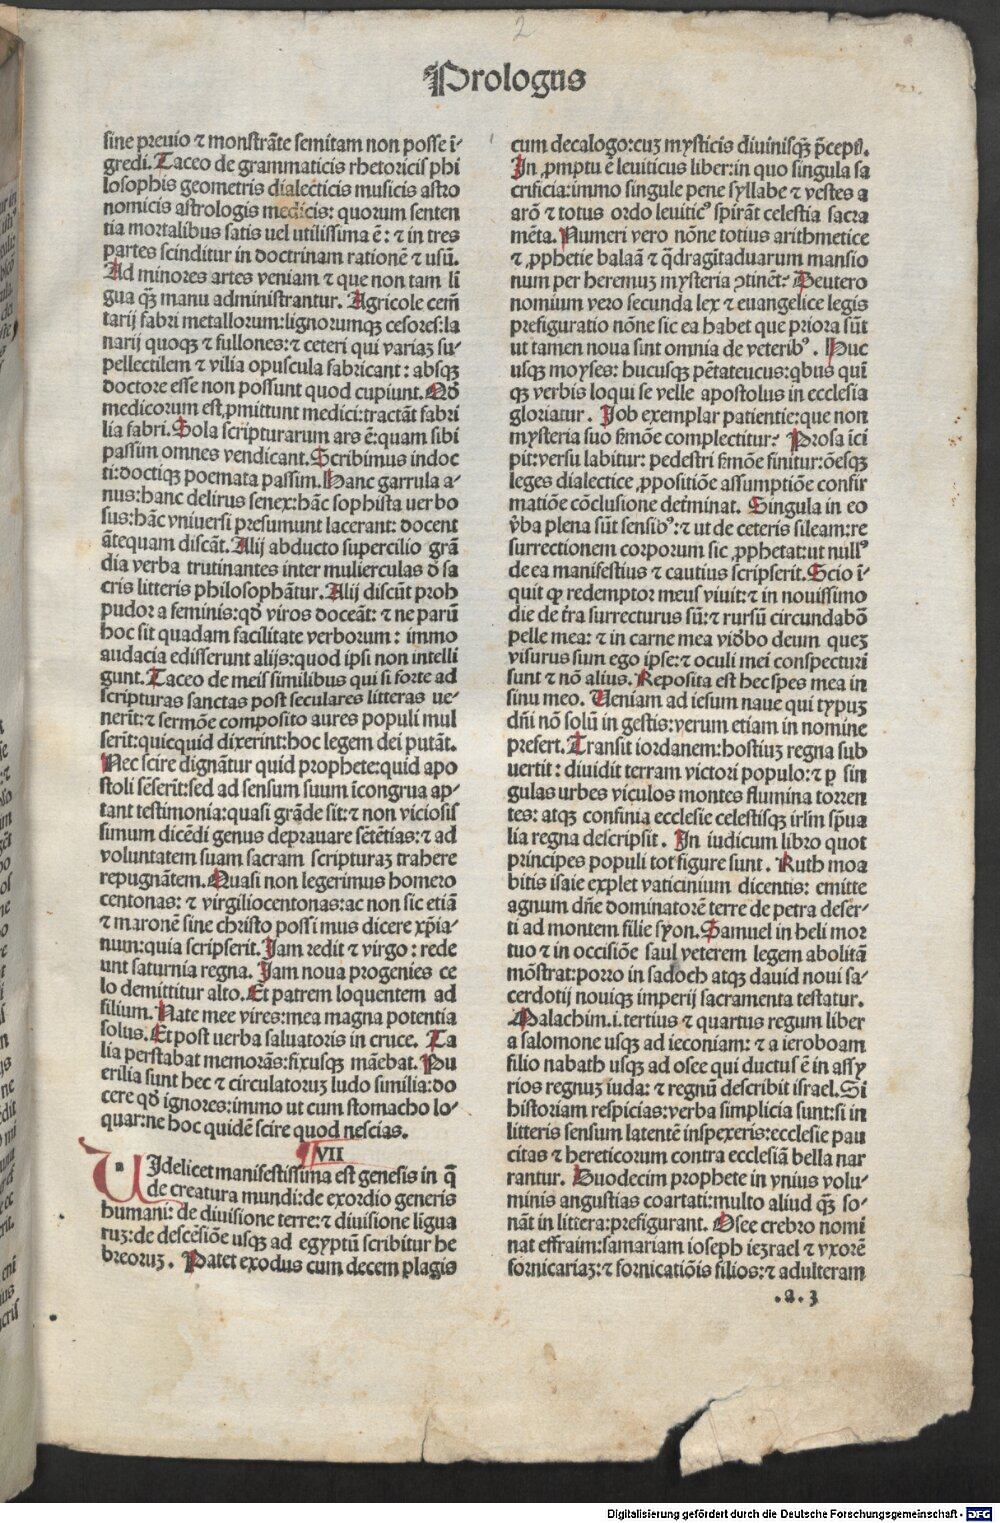 2
Prologus
sine preuio ⁊ monstrāte semitam non posse ī-
gredi. Taceo de grammaticis rhetoricis phi
losophis geometris dialecticis musicis astro
nomicis astrologis medicis: quorum senten
tia mortalibus satis uel utilissima ē: ⁊ in tres
partes scinditur in doctrinam rationē ⁊ usū.
Ad minores artes veniam ⁊ que non tam lī
gua qꝫ manu administrantur. Agricole cemē
tarij fabri metallorum:lignorumqꝫ cesores:la
narij quoqꝫ ⁊ fullones:⁊ ceteri qui variaꝫ su-
pellectilem ⁊ vilia opuscula fabricant: absqꝫ
doctore esse non possunt quod cupiunt. Qd̄
medicorum est,ꝓmittunt medici:tractāt fabri
lia fabri. Sola scripturarum ars ē:quam sibi
passim omnes vendicant. Scribimus indoc
ti:doctiqꝫ poemata passim. Hanc garrula a-
nus:hanc delirus senex:hāc sophista uerbo
sus:hāc vniuersi presumunt lacerant: docent
ātequam discāt. Alij abducto supercilio grā
dia verba trutinantes inter mulierculas d̄ sa
cris litteris philosophātur. Alij discūt proh
pudor a feminis:qd̄ viros doceāt: ⁊ ne parū
hoc sit quadam facilitate verborum: immo
audacia edisserunt alijs:quod ipsi non intelli
gunt. Taceo de meis similibus qui si forte ad
scripturas sanctas post seculares litteras ue-
nerit:⁊ sermōe composito aures populi mul
serit:quicquid dixerint:hoc legem dei putāt.
Nec scire dignātur quid prophete:quid apo
stoli sēserīt:sed ad sensum suum īcongrua ap-
tant testimonia:quasi grāde sit:⁊ non viciosis
simum dicēdi genus deprauare sētētias:⁊ ad
voluntatem suam sacram scripturaꝫ trahere
repugnātem. Quasi non legerimus homero
centonas: ⁊ virgiliocentonas:ac non sic etiā
⁊ maronē sine christo possimus dicere xp̄ia-
num:quia scripserit. Jam redit ⁊ virgo: rede
unt saturnia regna. Jam noua progenies ce
lo demittitur alto. Et patrem loquentem ad
filium. Nate mee vires:mea magna potentia
solus. Et post uerba saluatoris in cruce. Ta
lia perstabat memorās:fixusqꝫ māebat. Pu
erilia sunt hec ⁊ circulatoruꝫ ludo similia:do
cere qd̄ ignores:immo ut cum stomacho lo-
quar:ne hoc quidē scire quod nescias.
VII
UJdelicet manifestissima est genesis in q̄
de creatura mundi:de exordio generis
humani: de diuisione terre:⁊ diuisione ligua
ruꝫ:de descēsiōe usqꝫ ad egyptū scribitur he
breoruꝫ. Patet exodus cum decem plagis
cum decalogo:cuꝫ mysticis diuinisqꝫ p̄cepꝭ.
Jn ꝓmptu ē leuiticus liber:in quo singula sa
crificia:immo singule pene syllabe ⁊ vestes a
arō ⁊ totus ordo leuiticꝰ spirāt celestia sacra
mēta. Numeri vero nōne totius arithmetice
⁊ ꝓphetie balaā ⁊ q̄dragītaduarum mansio
num per heremuꝫ mysteria ꝯtinēt? Deutero
nomium vero secunda lex ⁊ euangelice legis
prefiguratio nōne sic ea habet que priora sūt
ut tamen noua sint omnia de veteribꝰ. Huc
usqꝫ moyses: hucusqꝫ pētateucus:qbus quī
qꝫ verbis loqui se velle apostolus in ecclesia
gloriatur. Job exemplar patientie:que non
mysteria suo s̄mōe complectitur? Prosa īci
pit:versu labitur: pedestri s̄mōe finitur:ōesqꝫ
leges dialectice ꝓpositiōe assumptiōe confir
matiōe cōclusione det̄minat. Singula in eo
v̄ba plena sūt sensibꝰ:⁊ ut de ceteris sileam:re
surrectionem corporum sic ꝓphetat:ut nullꝰ
de ea manifestius ⁊ cautius scripserit. Scio ī-
quit ꝙ redemptor meus viuit:⁊ in nouissimo
die de t̄ra surrecturus sū:⁊ rursū circundabō
pelle mea: ⁊ in carne mea vid̄bo deum queꝫ
visurus sum ego ipse:⁊ oculi mei conspecturi
sunt ⁊ nō alius. Reposita est hec spes mea in
sinu meo. Veniam ad iesum naue qui typuꝫ
dn̄i nō solū in gestis:verum etiam in nomine
prefert. Transit iordanem:hostiuꝫ regna sub
uertit: diuidit terram victori populo:⁊ ꝑ sin
gulas urbes viculos montes flumina torren
tes: atqꝫ confinia ecclesie celestisqꝫ irl̄m sp̄ua
lia regna descripsit. Jn iudicum libro quot
principes populi tot figure sunt. Ruth moa
bitis isaie explet vaticinium dicentis: emitte
agnum dn̄e dominatorē terre de petra deser-
ti ad montem filie syon. Samuel in heli mor
tuo ⁊ in occisiōe saul veterem legem abolitā
mōstrat:porro in sadoch atqꝫ dauid noui sa-
cerdotij nouiqꝫ imperij sacramenta testatur.
Malachim.i.tertius ⁊ quartus regum liber
a salomone usqꝫ ad ieconiam: ⁊ a ieroboam
filio nabath usqꝫ ad osee qui ductus ē in assy
rios regnuꝫ iuda: ⁊ regnū describit israel. Si
historiam respicias:verba simplicia sunt:si in
litteris sensum latentē inspexeris:ecclesie pau
citas ⁊ hereticorum contra ecclesiā bella nar
rantur. Duodecim prophete in vnius volu-
minis angustias coartati:multo aliud qꝫ so-
nāt in littera:prefigurant. Osee crebro nomi
nat effraim:samariam ioseph iezrael ⁊ vxorē
fornicariaꝫ:⁊ fornicatiōis filios:⁊ adulteram
.a.3
Digitalisierung gefördert durch die Deutsche Forschungsgemeinschaft - DFG